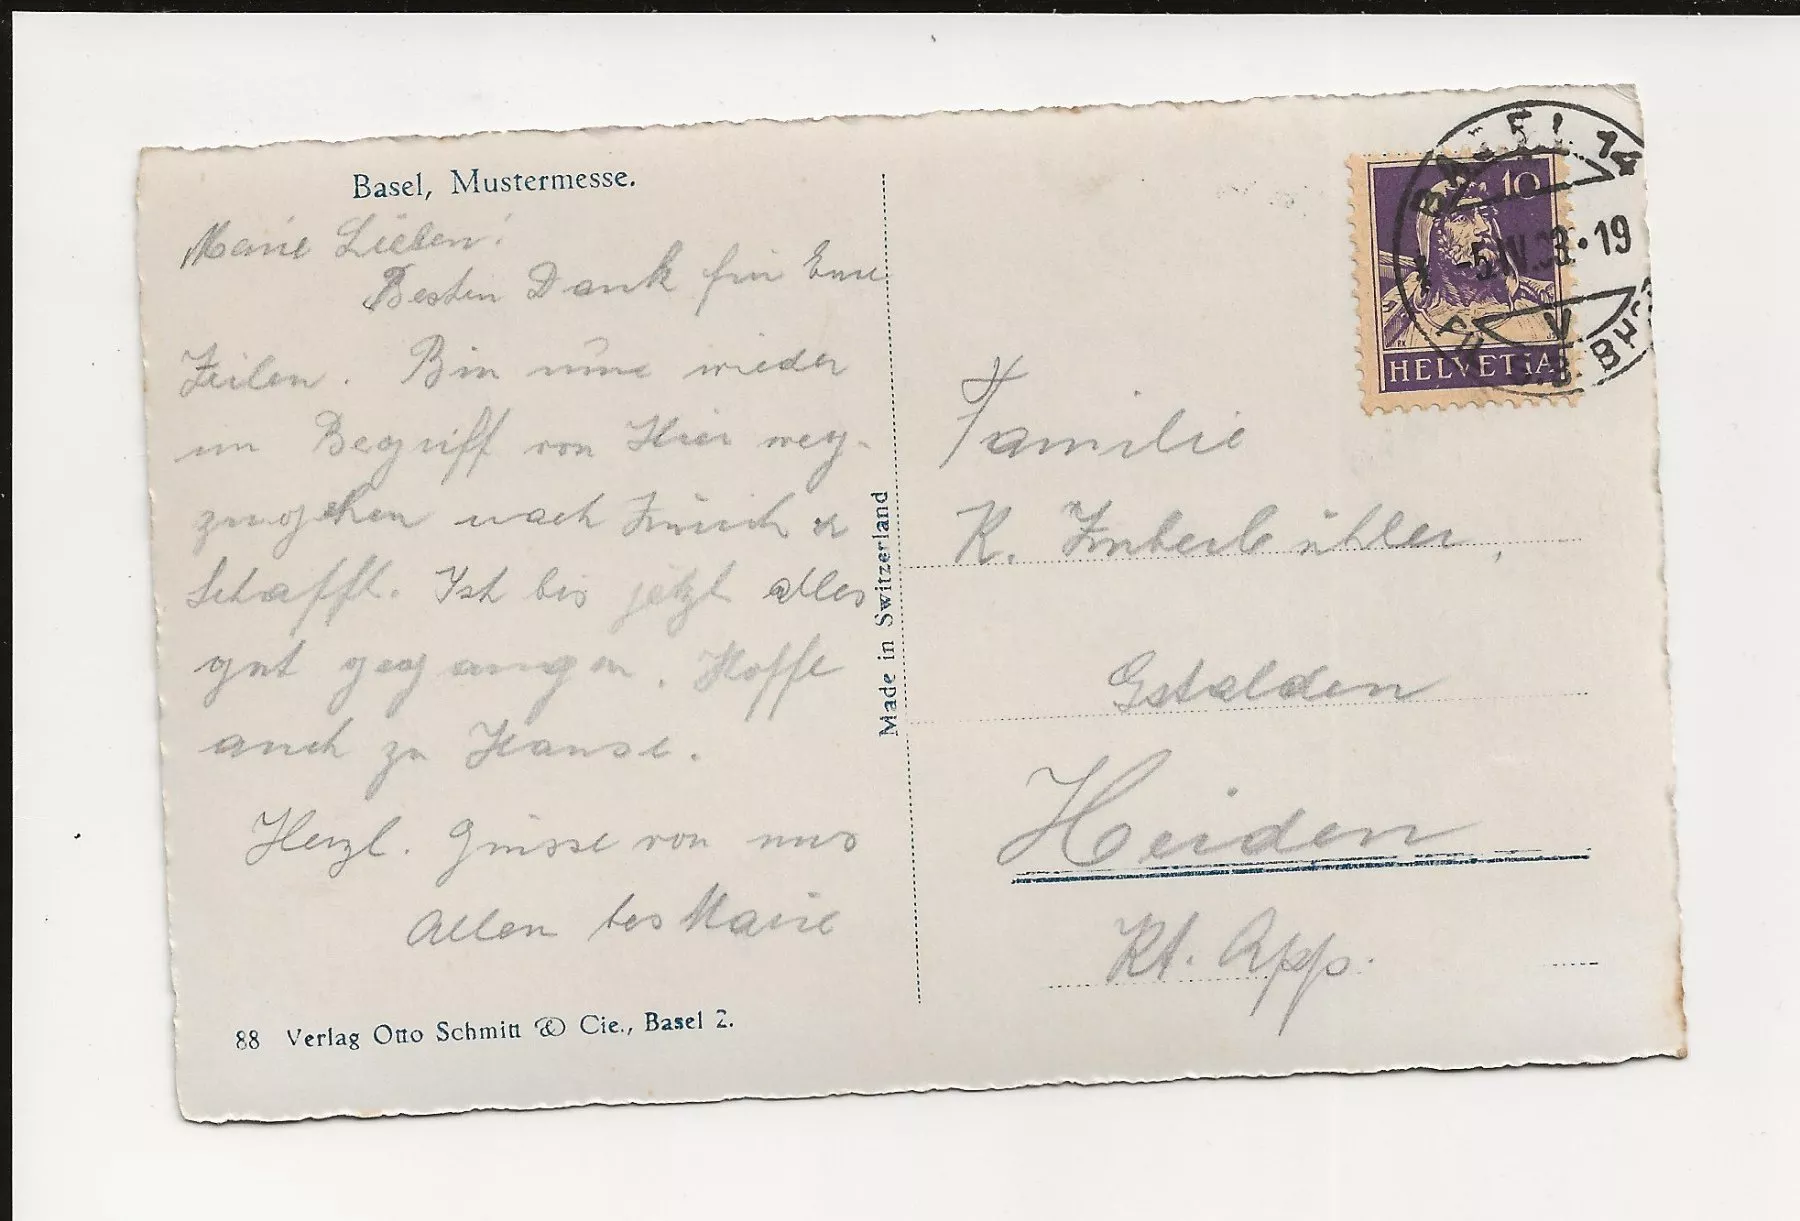 Basel, Mustermesse.
Meine Lieben!
Besten Dank für Eure
Zeilen. Bin nun wieder
im Begriff von Hier weg-
zugehen nach Zürich &
Schaffh. Ist bis jetzt alles
gut gegangen. Hoffe
auch zu Hause.
Herzl. Grüsse von uns
Allen bes Marie
88 Verlag Otto Schmitt & Cie., Basel 2.
Made in Switzerland
BASEL 14
-5.IV. 19
V
10
HELVETIA
Familie
K.
Gstalden
Heiden
Kt. App.